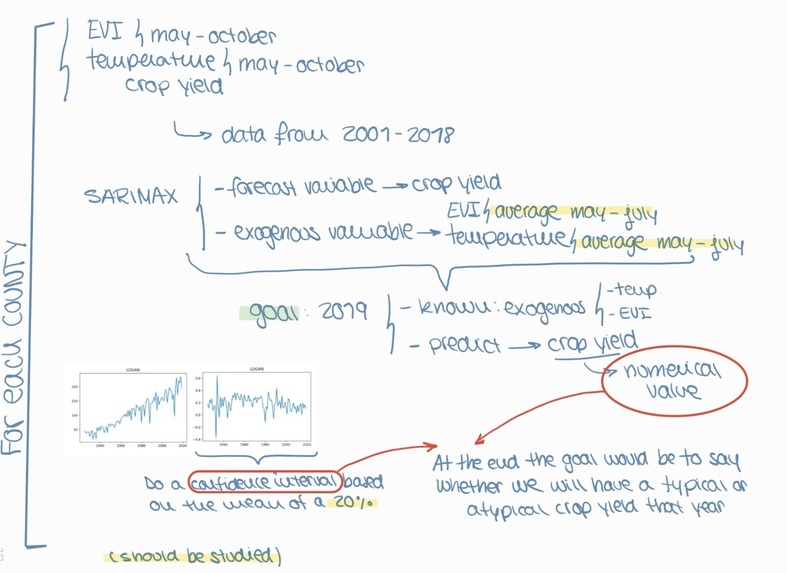 EVI } may-october
temperature } may-october
crop yield
data from 2001-2018
SARIMAX
- forecast variable → crop yield
EVI } average may-july
- exogenous variable → temperature } average may-july
goal: 2019
- known: exogenous
- temp
- EVI
- predict → crop yield
numerical
value
LOGAN
LOGAN
Do a confidence interval based
on the mean of a 20%
At the end the goal would be to say
whether we will have a typical or
atypical crop yield that year
(should be studied)
For each COUNTY